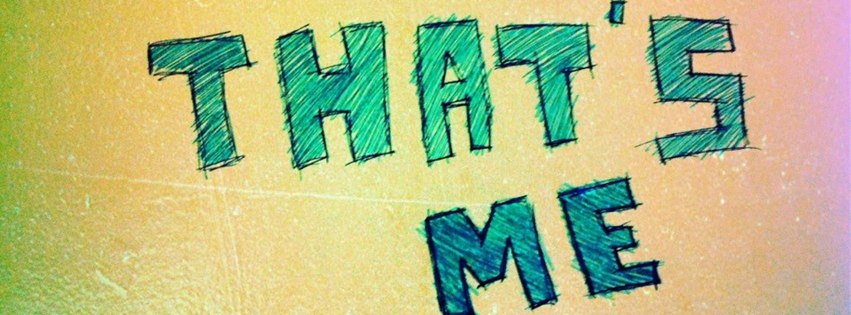 THAT'S
ME